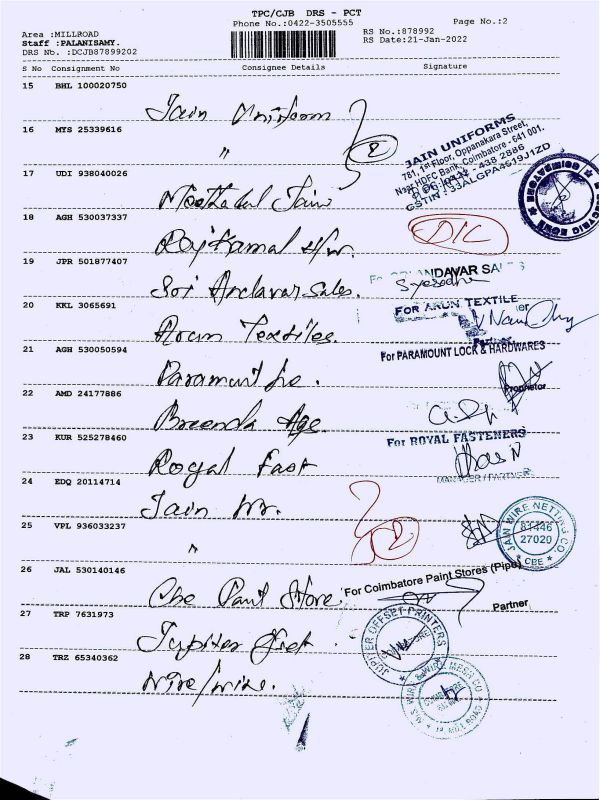 TPC/CJB DRS - PCT
Phone No.:0422-3505555
Page No.:2
Area :MILLROAD
RS No.:878992
Staff :PALANISAMY.
RS Date:21-Jan-2022
DRS No. :DCJB87899202
S No Consignment No Consignee Details Signature
15 BHL 100020750
Jain Uniform
16 MYS 25339616
"
2
JAIN UNIFORMS
781, 1st Floor, Oppanakara Street,
Near HDFC Bank, Coimbatore - 641 001.
438 2886
GSTIN : 33ALGPA4619J1ZD
17 UDI 938040026
Jain
18 AGH 530037337
Raj Kamal H/w.
DIC
19 JPR 501877407
Sri Andavar Sales.
ANDAVAR SALES
20 KKL 3065691
Arun Textiles.
For ARUN TEXTILE
Partner
21 AGH 530050594
Paramunt
For PARAMOUNT LOCK & HARDWARES
Proprietor
22 AMD 24177886
Age
23 KUR 525278460
Royal Fast
For ROYAL FASTENERS
MANAGER / PARTNER
24 EDQ 20114714
Jain Wr.
25 VPL 936033237
"
2
JAIN WIRE NETTING CO.
27020
CBE
26 JAL 530140146
Cbe Paint Store
For Coimbatore Paint Stores (Pipe)
Partner
27 TRP 7631973
Jupiter
JUPITER OFFSET PRINTERS
28 TRZ 65340362
Wire/wire.
WIRE MESH CO
MILL ROAD